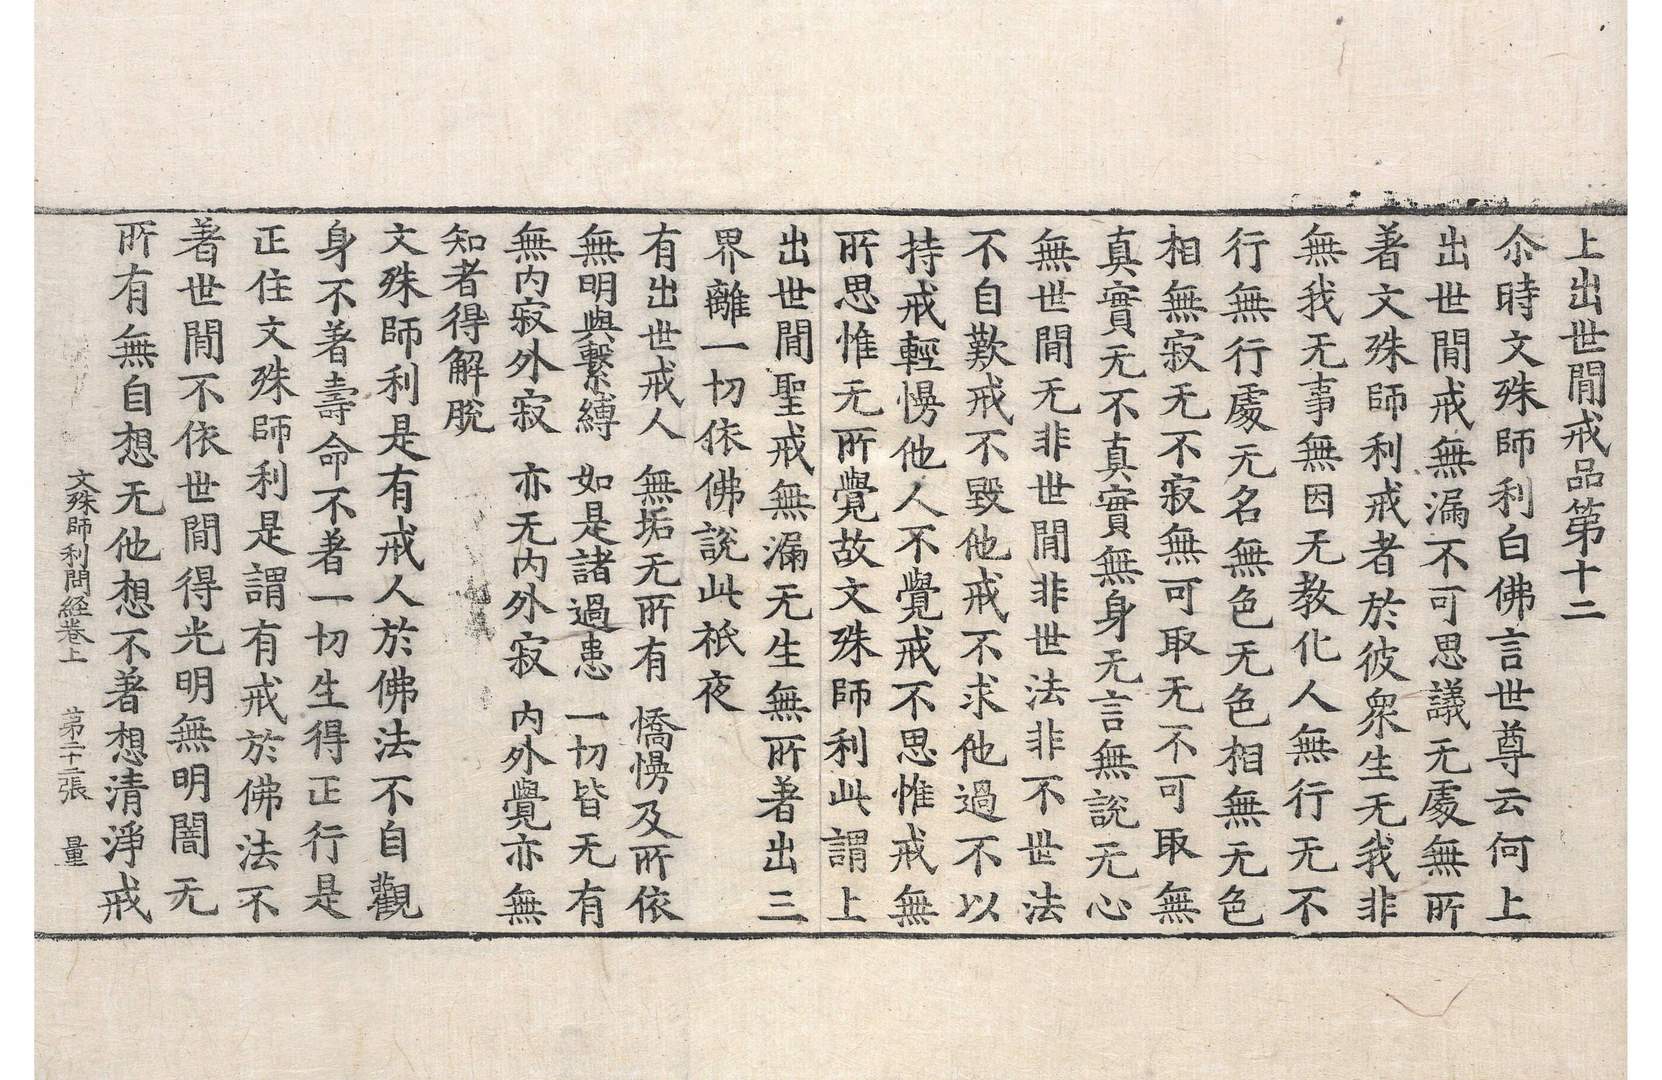 上出世閒戒品第十二
尒時文殊師利白佛言世尊云何上
出世閒戒無漏不可思議无處無所
著文殊師利戒者於彼衆生无我非
無我无事無因无教化人無行无不
行無行處无名無色无色相無无色
相無寂无不寂無可取无不可取無
真實无不真實無身无言無說无心
無世閒无非世閒非世法非不世法
不自歎戒不毀他戒不求他過不以
持戒輕慢他人不覺戒不思惟戒無
所思惟无所覺故文殊師利此謂上
出世閒聖戒無漏无生無所著出三
界離一切依佛說此祇夜
有出世戒人　無垢无所有　憍慢及所依
無明與繫縛　如是諸過患　一切皆无有
無內寂外寂　亦无內外寂　內外覺亦無
知者得解脫
文殊師利是有戒人於佛法不自觀
身不著壽命不著一切生得正行是
正住文殊師利是謂有戒於佛法不
著世閒不依世閒得光明無明闇无
所有無自想无他想不著想清淨戒
文殊師利問経卷上　第二十二張　量